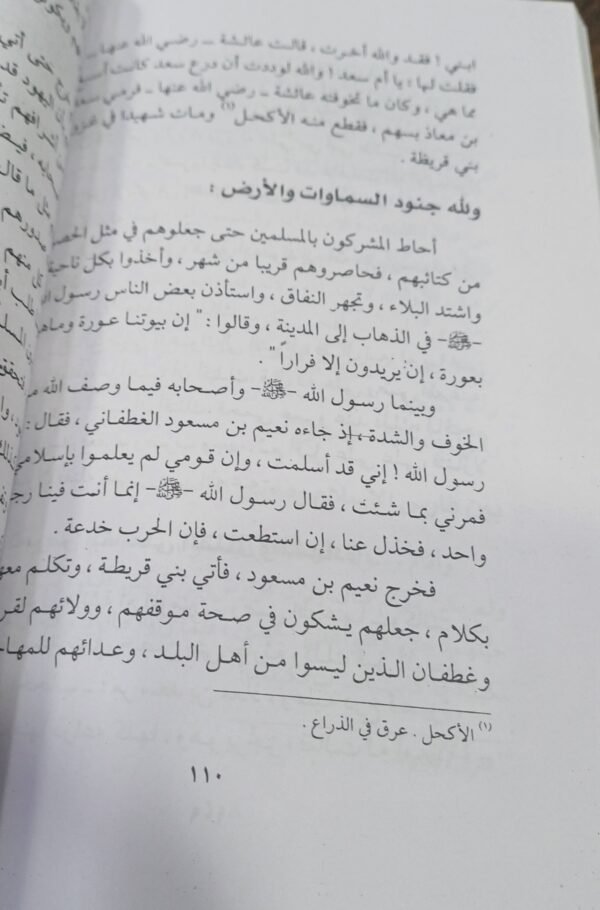 ابني ! فقد والله أخرت ، قالت عائشة – رضي الله عنها –
فقلت لها : يا أم سعد ! والله لوددت أن درع سعد كانت
مما هي ، وكان ما تخوفته عائشة – رضي الله عنها – فرمي سعد
بن معاذ بسهم ، فقطع منه الأكحل(١) ومات شهيدا في
بني قريظة .
ولله جنود السماوات والأرض :
أحاط المشركون بالمسلمين حتى جعلوهم في مثل
من كتائبهم ، فحاصروهم قريبا من شهر ، وأخذوا بكل ناحية
واشتد البلاء ، وتجهر النفاق ، واستأذن بعض الناس رسول
-ﷺ- في الذهاب إلى المدينة ، وقالوا : " إن بيوتنا عورة
بعورة ، إن يريدون إلا فراراً " .
وبينما رسول الله -ﷺ- وأصحابه فيما وصف الله
الخوف والشدة ، إذ جاءه نعيم بن مسعود الغطفاني ، فقال :
رسول الله ! إني قد أسلمت ، وإن قومي لم يعلموا بإسلامي
فمرني بما شئت ، فقال رسول الله -ﷺ- إنما أنت فينا
واحد ، فخذل عنا ، إن استطعت ، فإن الحرب خدعة .
فخرج نعيم بن مسعود ، فأتي بني قريظة ، وتكلم
بكلام ، جعلهم يشكون في صحة موقفهم ، وولائهم
وغطفان الذين ليسوا من أهل البلد ، وعدائهم
(١) الأكحل . عرق في الذراع .
١١٠